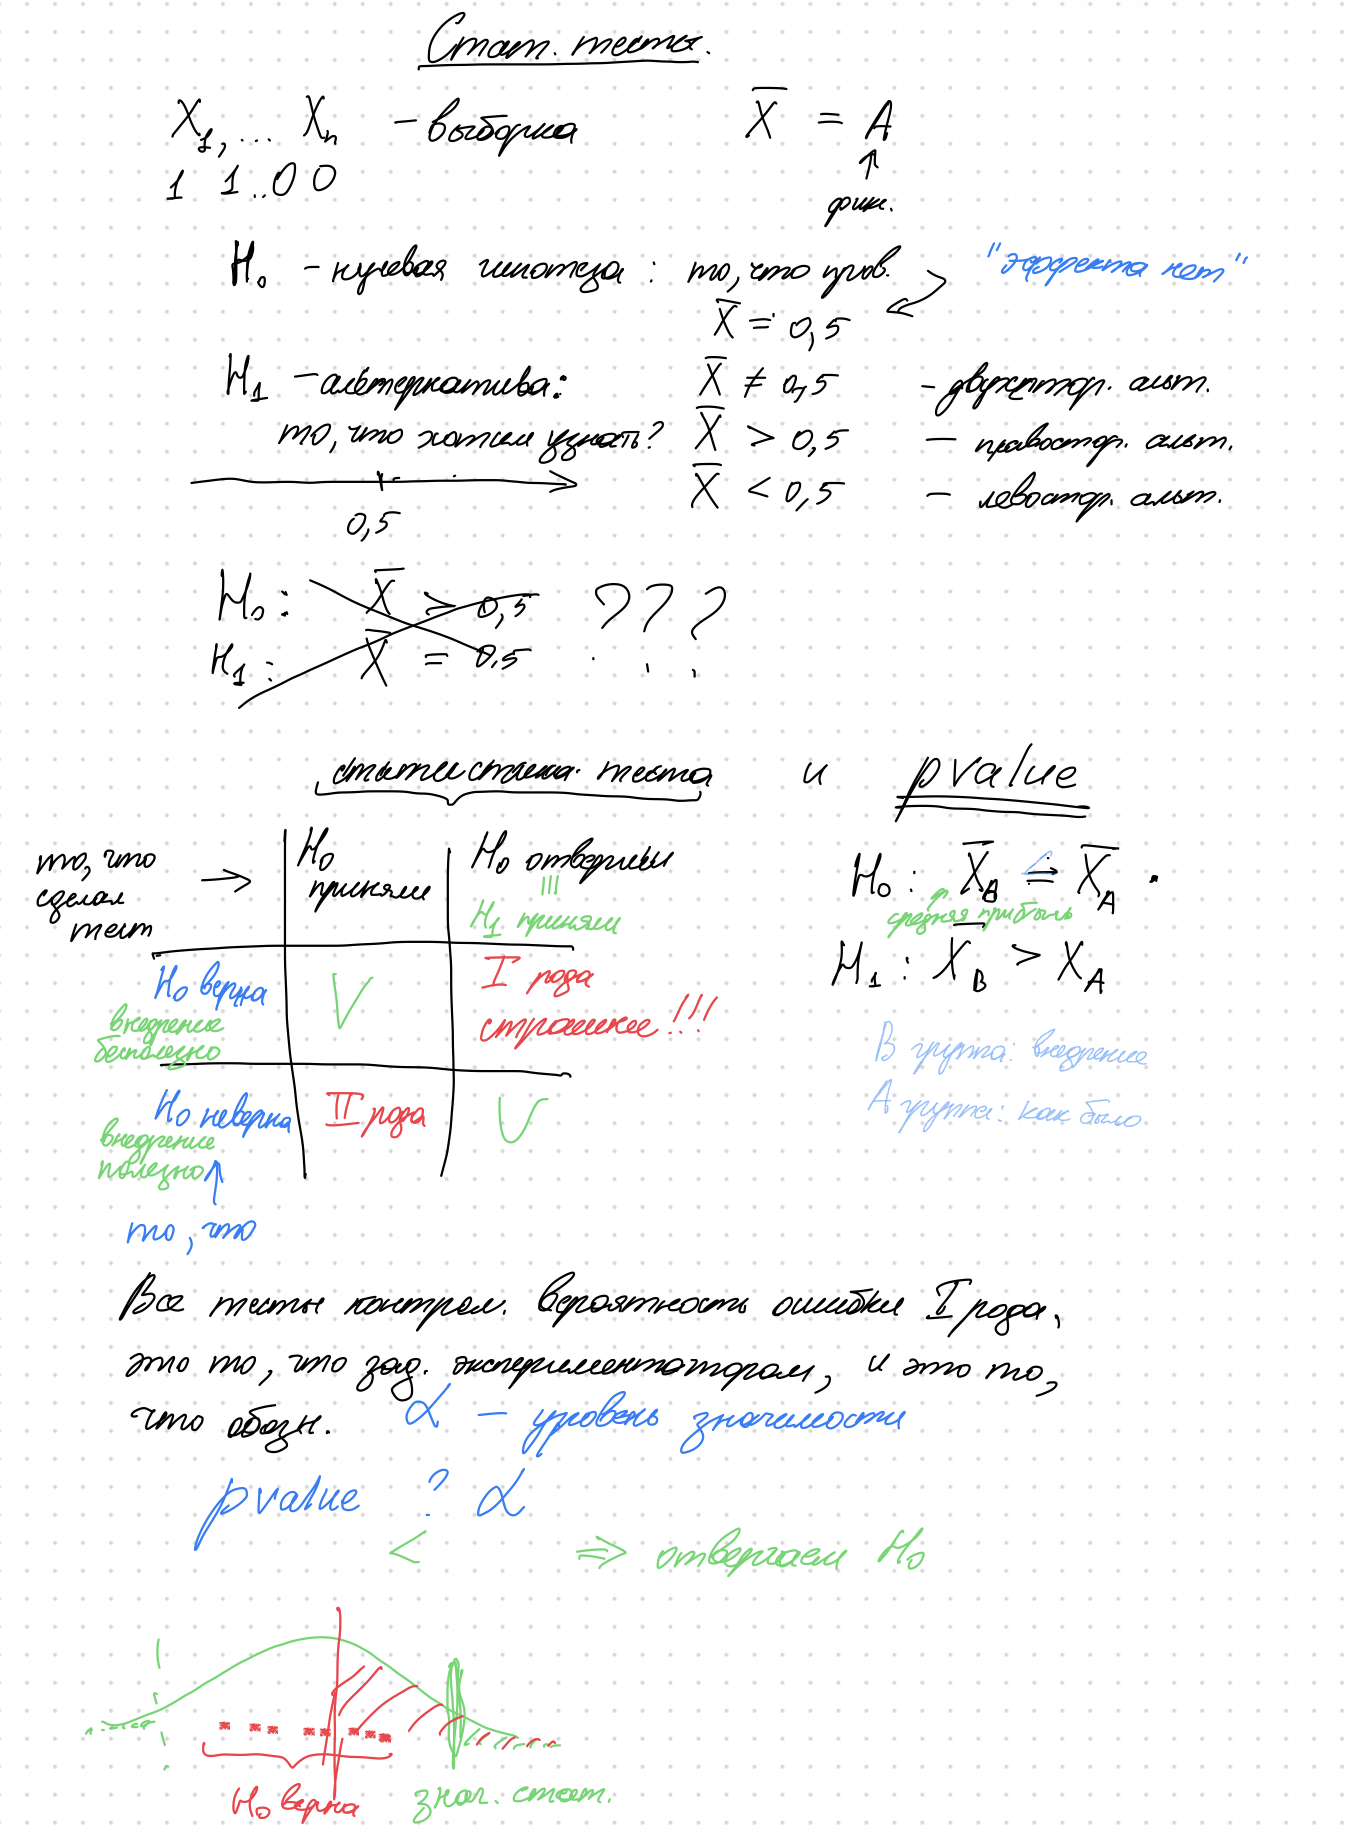 Стат. тесты.
X₁, ... Xₙ - выборка
X̅ = A
1 1 .. 0 0
↑
фик.
H₀ - нулевая гипотеза : то, что пров.
"эффекта нет"
X̅ = 0,5
H₁ - альтернатива:
X̅ ≠ 0,5 - двухстор. альт.
то, что хотим узнать?
X̅ > 0,5 - правостор. альт.
X̅ < 0,5 - левостор. альт.
0,5
H₀ : X̅ > 0,5 ???
H₁ : X̅ = 0,5
статистика теста и pvalue
то, что сделал тест →
H₀ приняли
H₀ отвергли
H₁ приняли
H₀ верна
внедрение бесполезно
V
I рода
страшнее!!!
H₀ неверна
внедрение полезно
II рода
V
то, что
H₀ : X̅_B = X̅_A .
средняя прибыль
H₁ : X̅_B > X_A
B группа: внедрение
A группа: как было
Все тесты контрол. вероятность ошибки I рода,
это то, что зад. экспериментатором, и это то,
что обозн. α - уровень значимости
pvalue ? α
< ⇒ отвергаем H₀
H₀ верна
знач. стат.